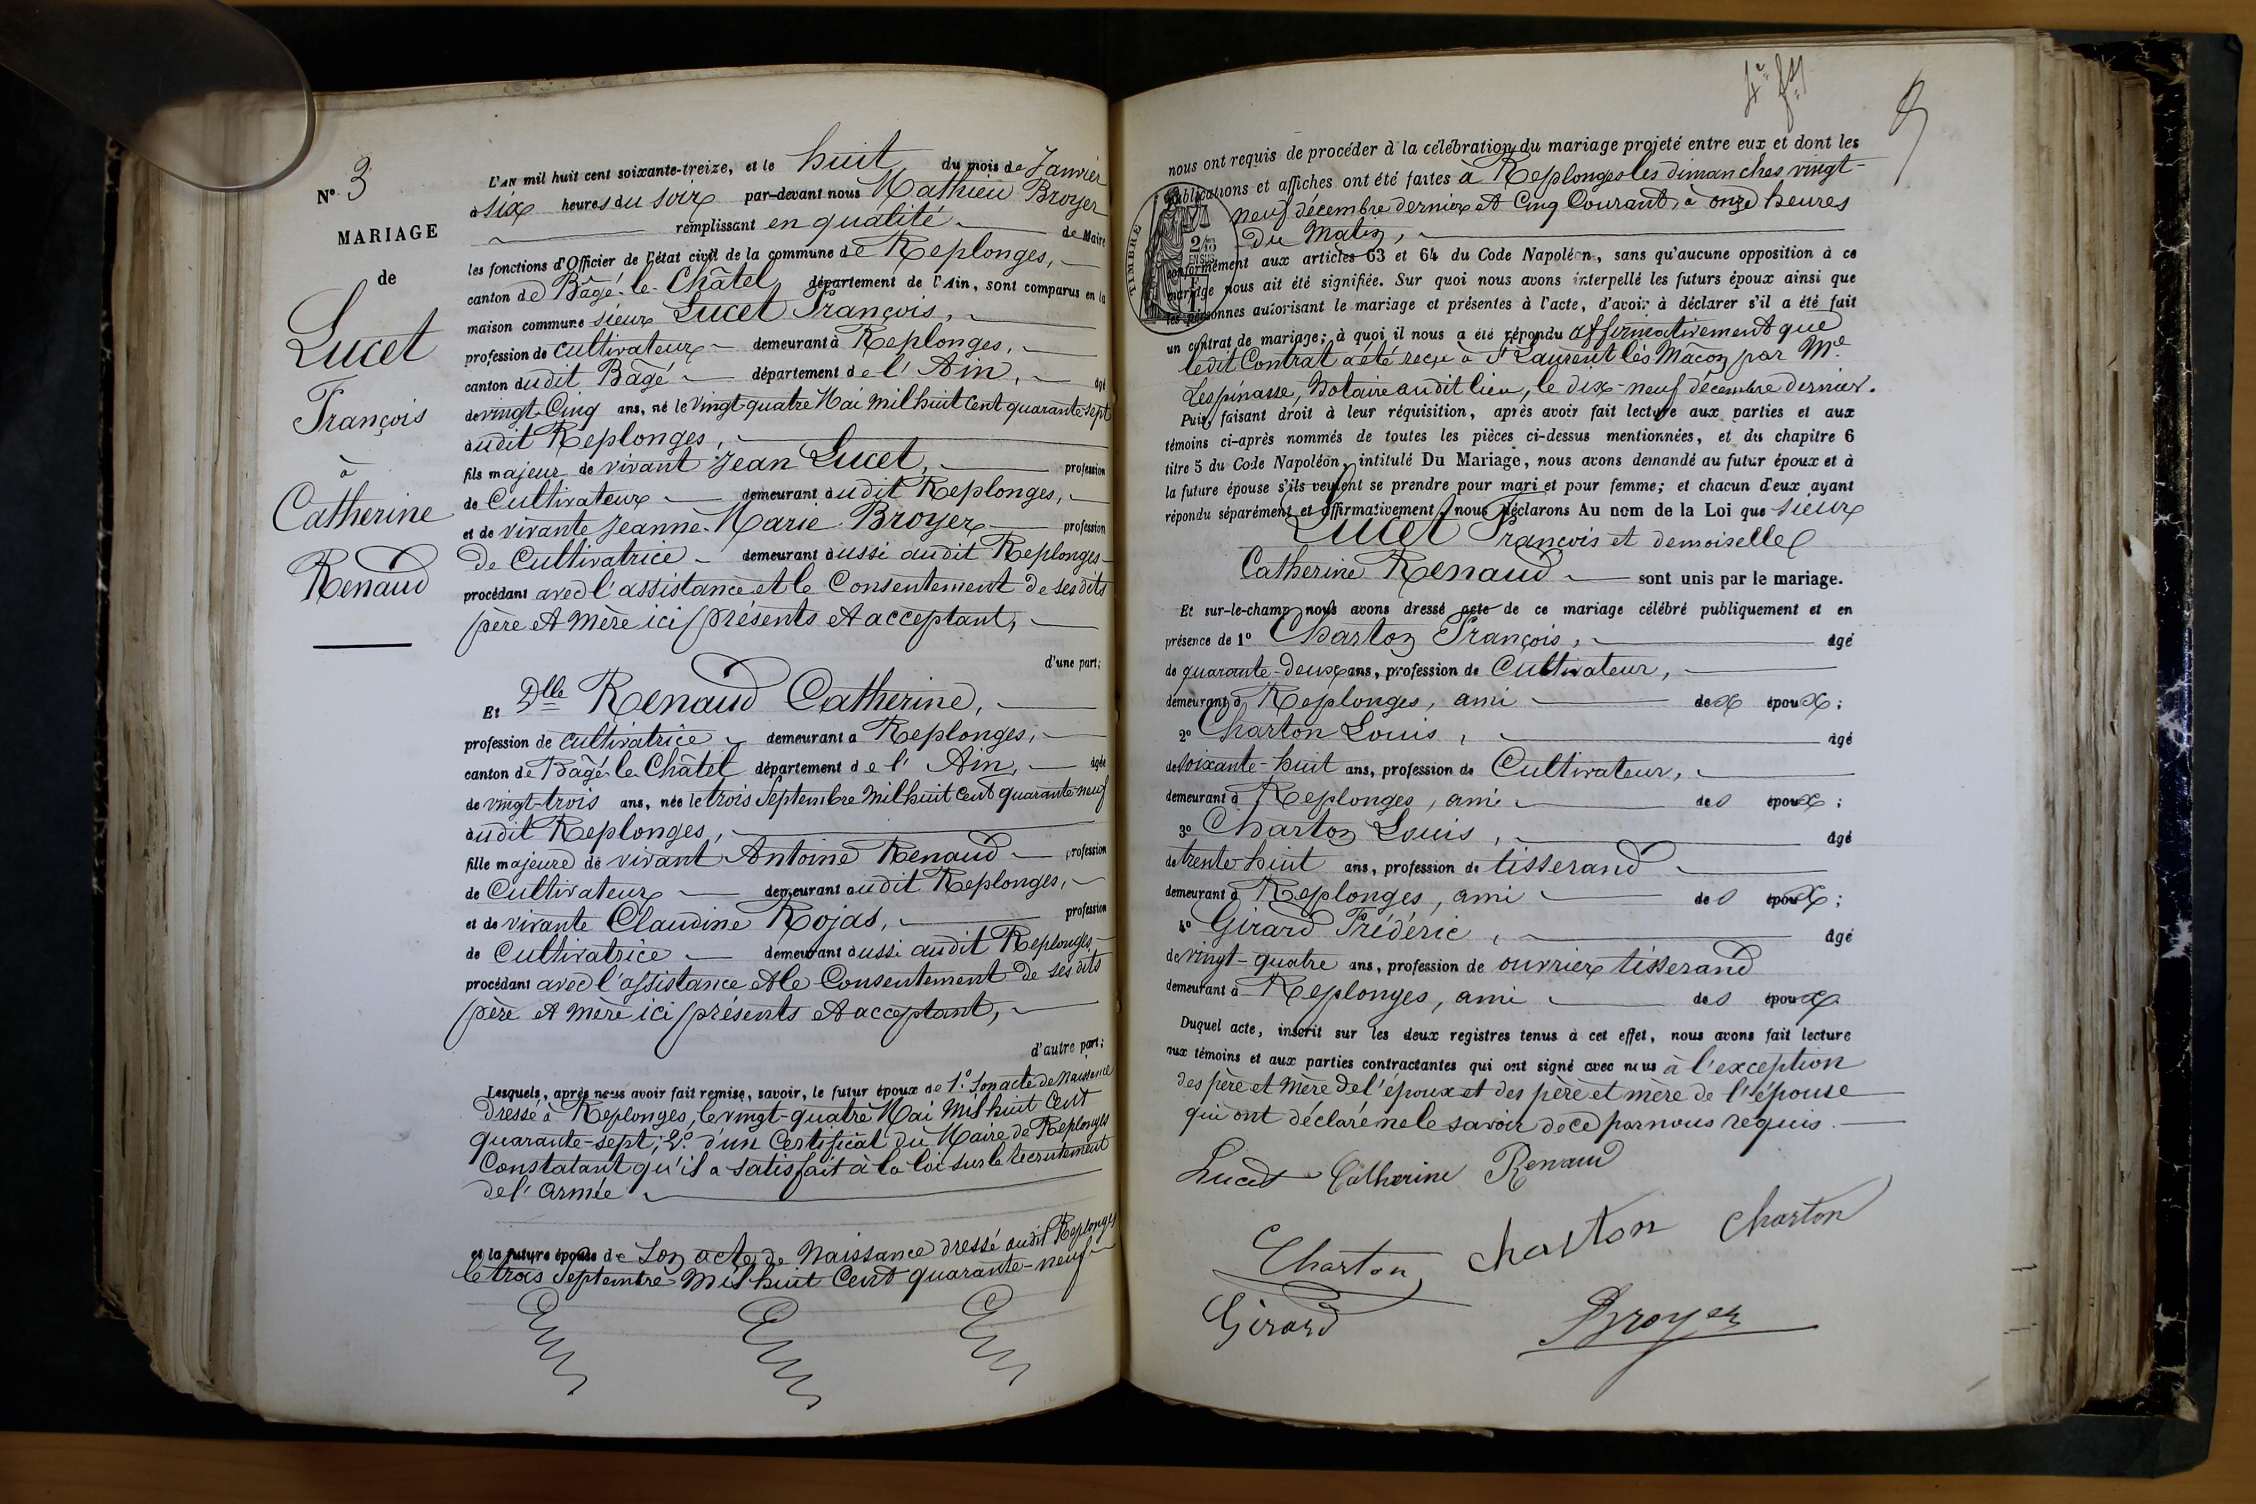 N° 3
MARIAGE
de
Lucet
François
à
Catherine
Renaud
L'AN mil huit cent soixante-treize, et le huit du mois de Janvier
à six heures du soir par-devant nous Mathieu Broyer
remplissant en qualité de Maire
les fonctions d'Officier de l'état civil de la commune de Replonges,
canton de Bâgé-le-Châtel, département de l'Ain, sont comparus en la
maison commune sieur Lucet François,
profession de cultivateur demeurant à Replonges,
canton dudit Bâgé département de l'Ain, âgé
de vingt-Cinq ans, né le vingt-quatre Mai mil huit cent quarante-sept
audit Replonges,
fils majeur de vivant Jean Lucet, profession
de Cultivateur demeurant audit Replonges,
et de vivante Jeanne-Marie Broyer profession
De Cultivatrice demeurant aussi audit Replonges
procédant avec l'assistance et le Consentement de ses dits
père et Mère ici présents et acceptant,
d'une part;
Et Dlle Renaud Catherine,
profession de cultivatrice demeurant à Replonges,
canton de Bâgé-le-Châtel département de l'Ain, âgée
de vingt-trois ans, née le trois Septembre Mil huit Cent quarante-neuf
audit Replonges,
fille majeure de vivant Antoine Renaud profession
de Cultivateur demeurant audit Replonges,
et de vivante Claudine Rojas, profession
de Cultivatrice demeurant aussi audit Replonges
procédant avec l'assistance et le Consentement de ses dits
père et Mère ici présents et acceptant,
d'autre part;
Lesquels, après nous avoir fait remise, savoir, le futur époux de 1.° Son acte de Naissance
dressé à Replonges, le vingt-quatre Mai Mil huit Cent
quarante-sept; 2.° d'un Certificat du Maire de Replonges
Constatant qu'il a satisfait à la loi sur le recrutement
de l'armée
et la future épouse de Son acte de Naissance dressé audit Replonges
le trois Septembre Mil huit Cent quarante-neuf
nous ont requis de procéder à la célébration du mariage projeté entre eux et dont les
publications et affiches ont été faites à Replonges les dimanches vingt-
neuf décembre dernier et Cinq Courant, à onze heures
du Matin,
TIMBRE
conformément aux articles 63 et 64 du Code Napoléon, sans qu'aucune opposition à ce
mariage nous ait été signifiée. Sur quoi nous avons interpellé les futurs époux ainsi que
les personnes autorisant le mariage et présentes à l'acte, d'avoir à déclarer s'il a été fait
un contrat de mariage; à quoi il nous a été répondu affirmativement que
ledit Contrat a été reçu à St Laurent lès Mâcon par Me
Lespinasse, Notaire audit lieu, le dix-neuf décembre dernier.
Puis, faisant droit à leur réquisition, après avoir fait lecture aux parties et aux
témoins ci-après nommés de toutes les pièces ci-dessus mentionnées, et du chapitre 6
titre 5 du Code Napoléon, intitulé Du Mariage, nous avons demandé au futur époux et à
la future épouse s'ils veulent se prendre pour mari et pour femme; et chacun d'eux ayant
répondu séparément et affirmativement, nous déclarons Au nom de la Loi que sieur
Lucet François et demoiselle
Catherine Renaud sont unis par le mariage.
Et sur-le-champ nous avons dressé acte de ce mariage célébré publiquement et en
présence de 1° Charton François, âgé
de quarante-deux ans, profession de Cultivateur,
demeurant à Replonges, ami des époux;
2° Charton Louis, âgé
de soixante-huit ans, profession de Cultivateur,
demeurant à Replonges, ami des époux;
3° Charton Louis, âgé
de trente-huit ans, profession de tisserand
demeurant à Replonges, ami des époux;
4° Girard Frédéric, âgé
de vingt-quatre ans, profession de ouvrier tisserand
demeurant à Replonges, ami des époux
Duquel acte, inscrit sur les deux registres tenus à cet effet, nous avons fait lecture
aux témoins et aux parties contractantes qui ont signé avec nous à l'exception
des père et Mère de l'époux et des père et mère de l'épouse
qui ont déclaré ne le savoir de ce par nous requis.
Lucet Catherine Renaud
Charton charton charton
Girard Broyer